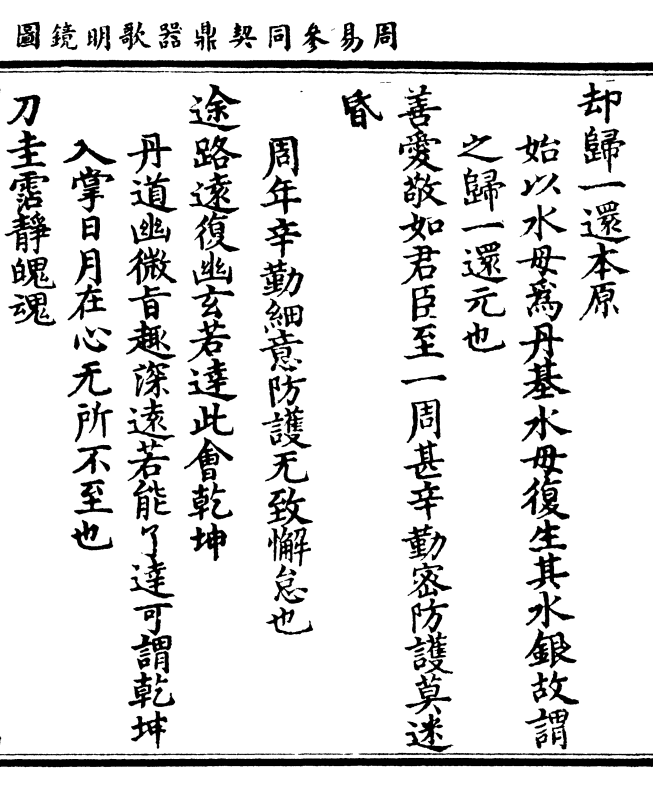 周易參同契鼎器歌明鏡圖
却歸一還本原
始以水母爲丹基水母復生其水銀故謂
之歸一還元也
善愛敬如君臣至一周甚辛勤密防護莫迷
昏
周年辛勤細意防護无致懈怠也
途路遠復幽玄若達此會乾坤
丹道幽微旨趣深遠若能了達可謂乾坤
入掌日月在心无所不至也
刀圭霑靜魄魂